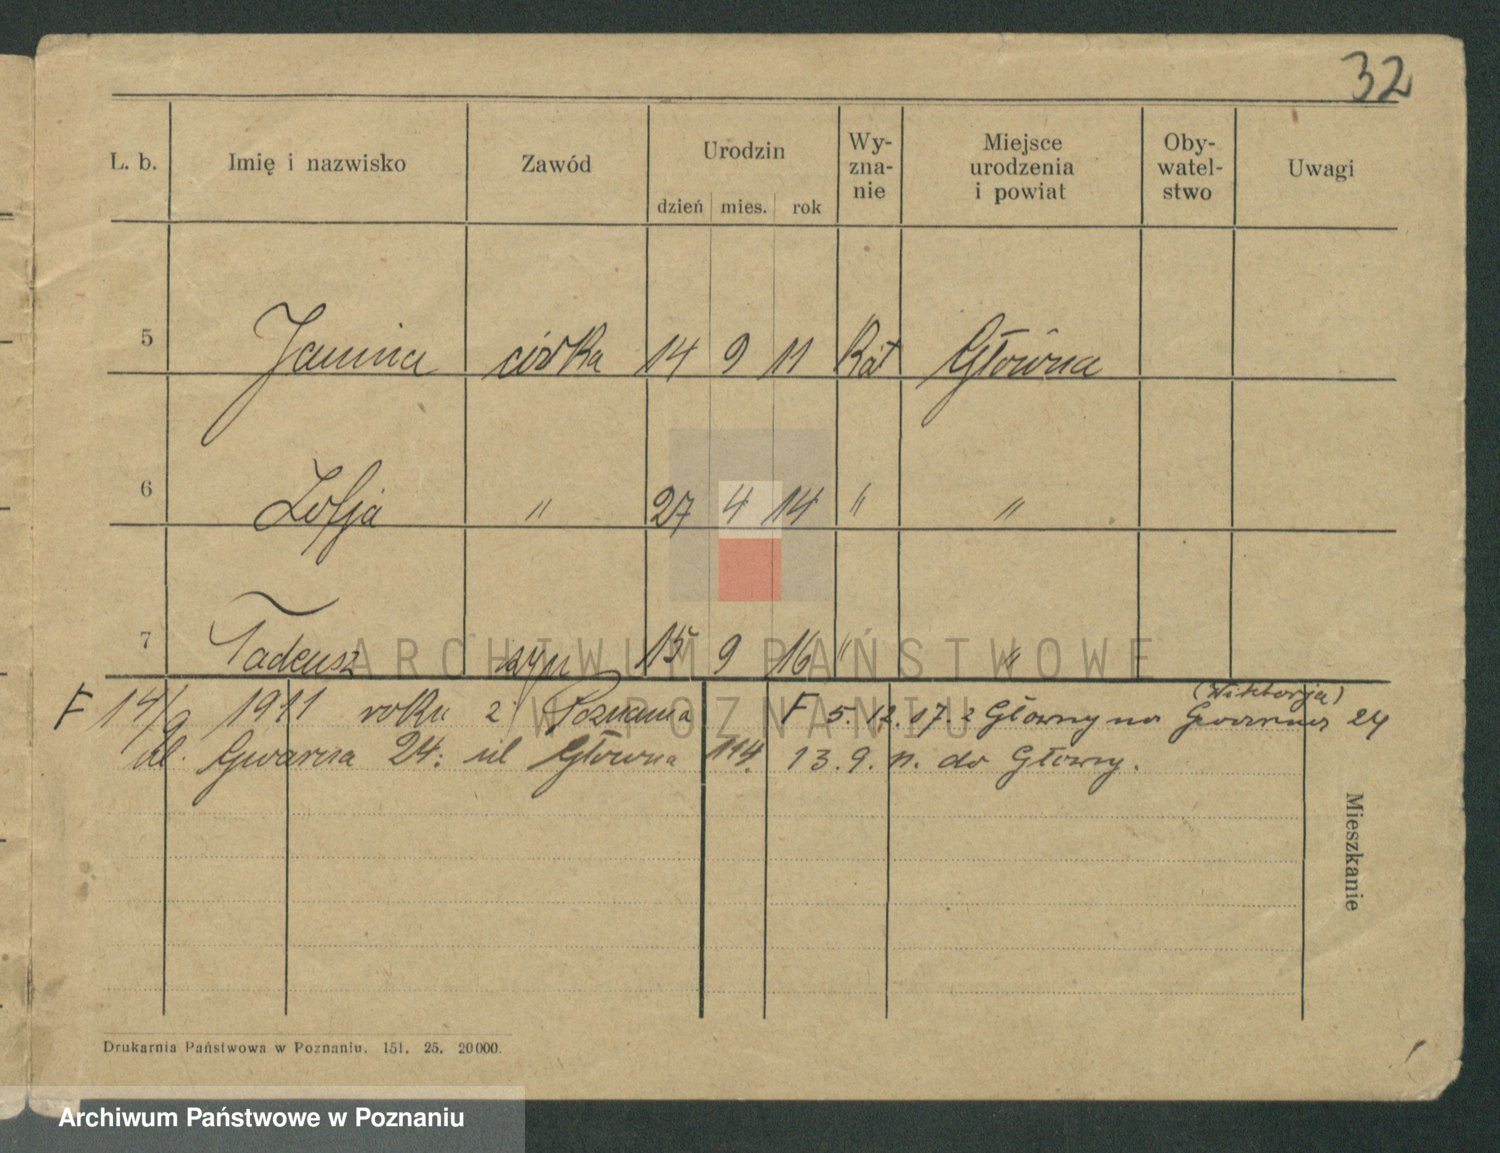 32
L. b. Imię i nazwisko Zawód Urodzin dzień mies. rok Wy-zna-nie Miejsce urodzenia i powiat Oby-watel-stwo Uwagi
5 Janina córka 14 9 11 Kat Główna
6 Zofja " 27 4 14 " "
7 Tadeusz syn 15 9 16 " "
ARCHIWUM PAŃSTWOWE
W POZNANIU
(Wiktorja)
F 14/9 1911 roku z Poznania F 5. 12. 07. z Głowny na 24
ul. Gwarna 24. ul Głowna 114. 13. 9. 11. do Głowny.
Mieszkanie
Drukarnia Państwowa w Poznaniu. 151. 25. 20000.
Archiwum Państwowe w Poznaniu